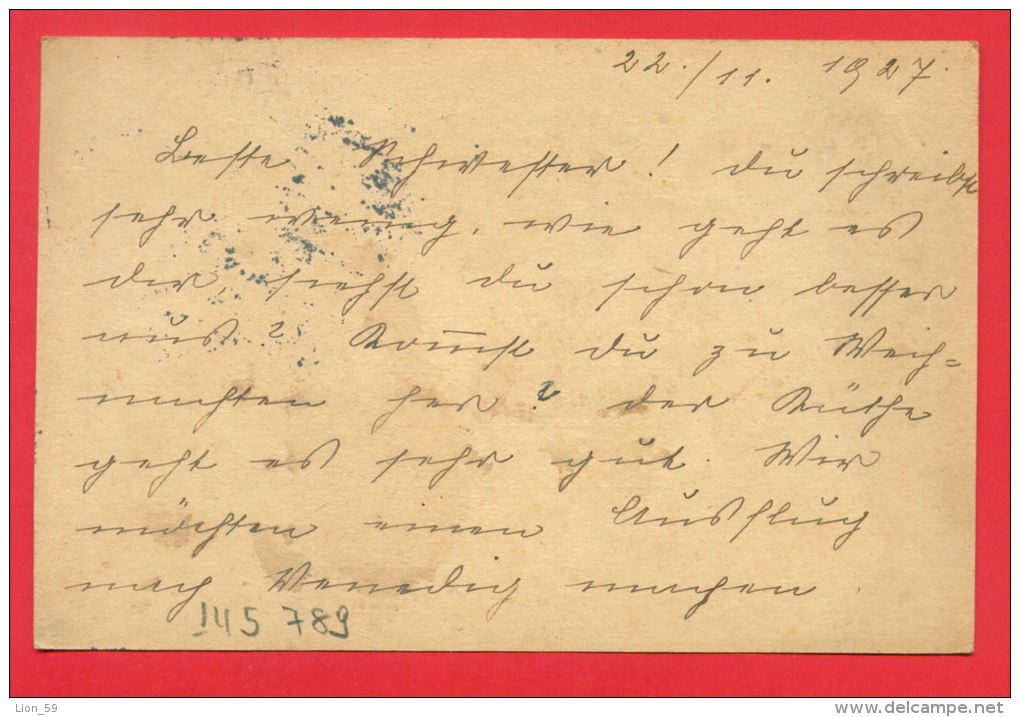 22./11. 1927.
Beste Schwester! du schreibst
sehr wenig, wie geht es
dir, siehst du schon besser
aus? Kom̅st du zu Weih=
nachten her? der Käthe
geht es sehr gut. Wir
möchten einen Ausflug
nach Venedig machen.
145 789
Lion_59